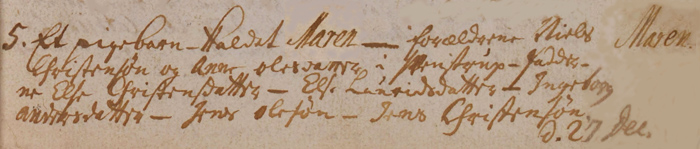 5. Et pigebarn - kaldet Maren — forældrene Niels Maren
Christensøn og Anne olesdatter i Wenstrup - fadde-
ne Else Christensdatter — Else Lauridsdatter — Ingeborg
andersdatter — Jens olesøn — Jens Christensøn.
d. 27 Dec.